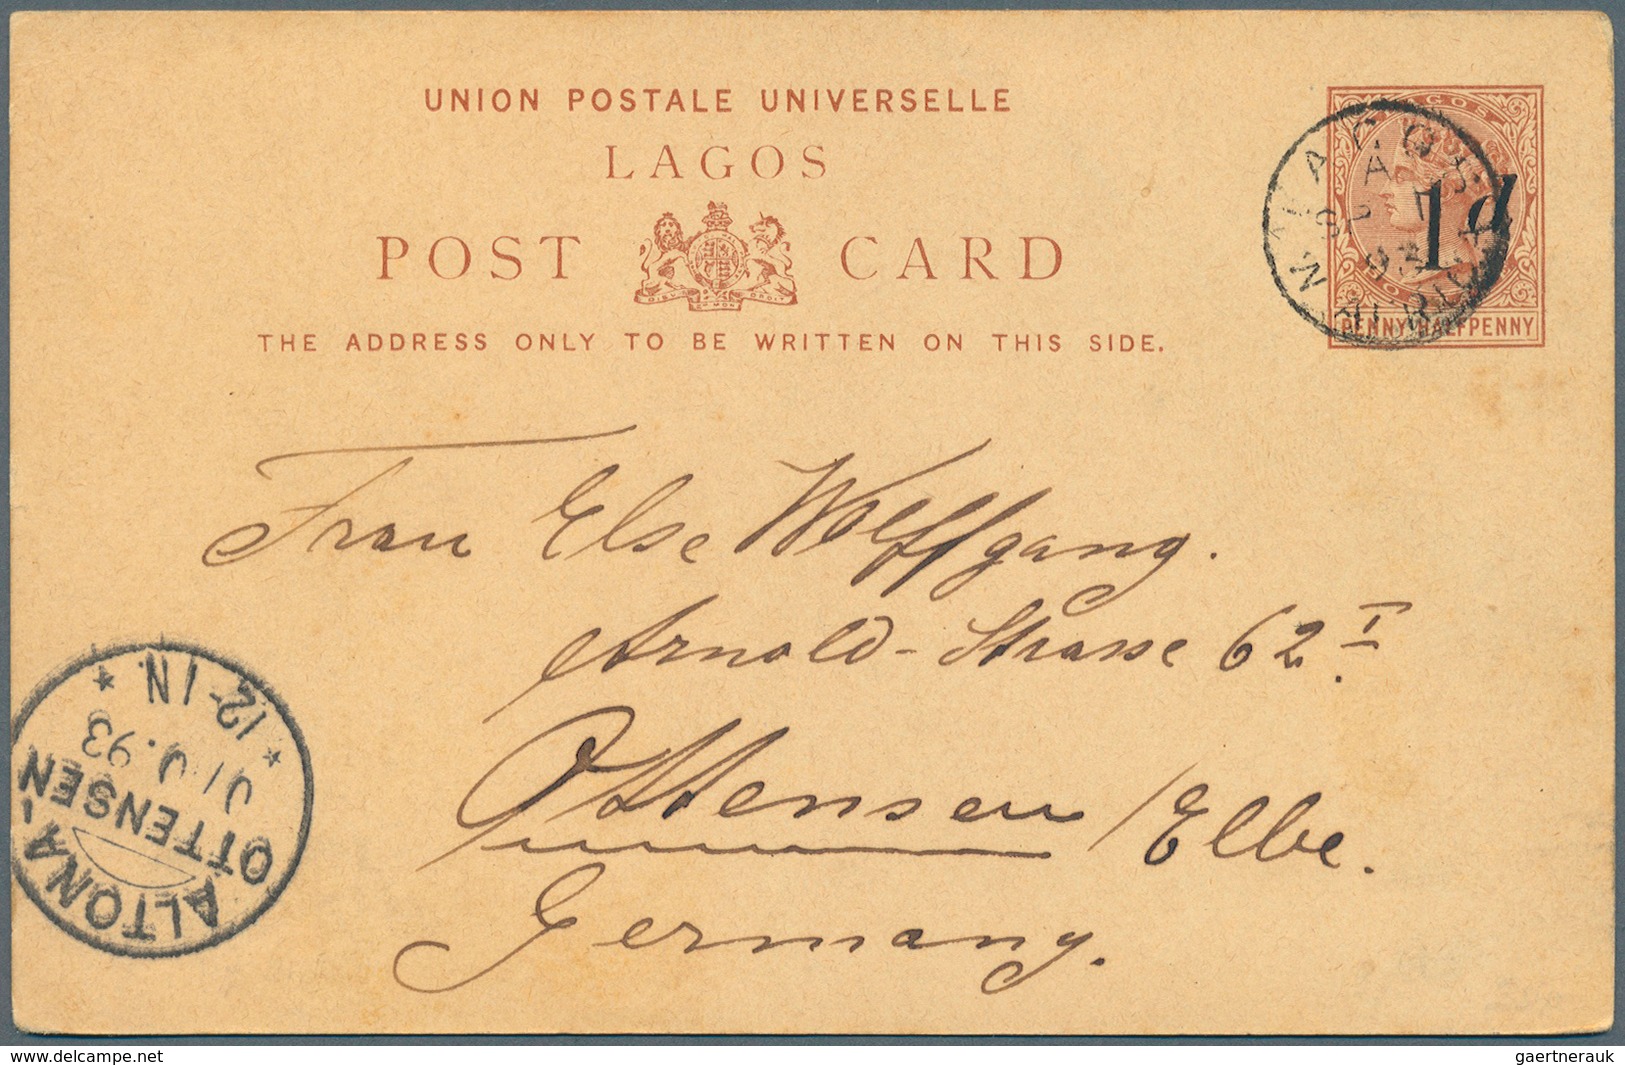 UNION POSTALE UNIVERSELLE
LAGOS
POST CARD
DIEU ET MON DROIT
THE ADDRESS ONLY TO BE WRITTEN ON THIS SIDE.
LAGOS
1d
PENNY HALFPENNY
LAGOS
A
93
W. AFRICA
Frau Else Wolffgang.
Arnold-Strasse 62 I.
Ottensen /Elbe.
Germany.
ALTONA-
OTTENSEN
93
* 12-1N *
delcampe.net
gaertnerauk